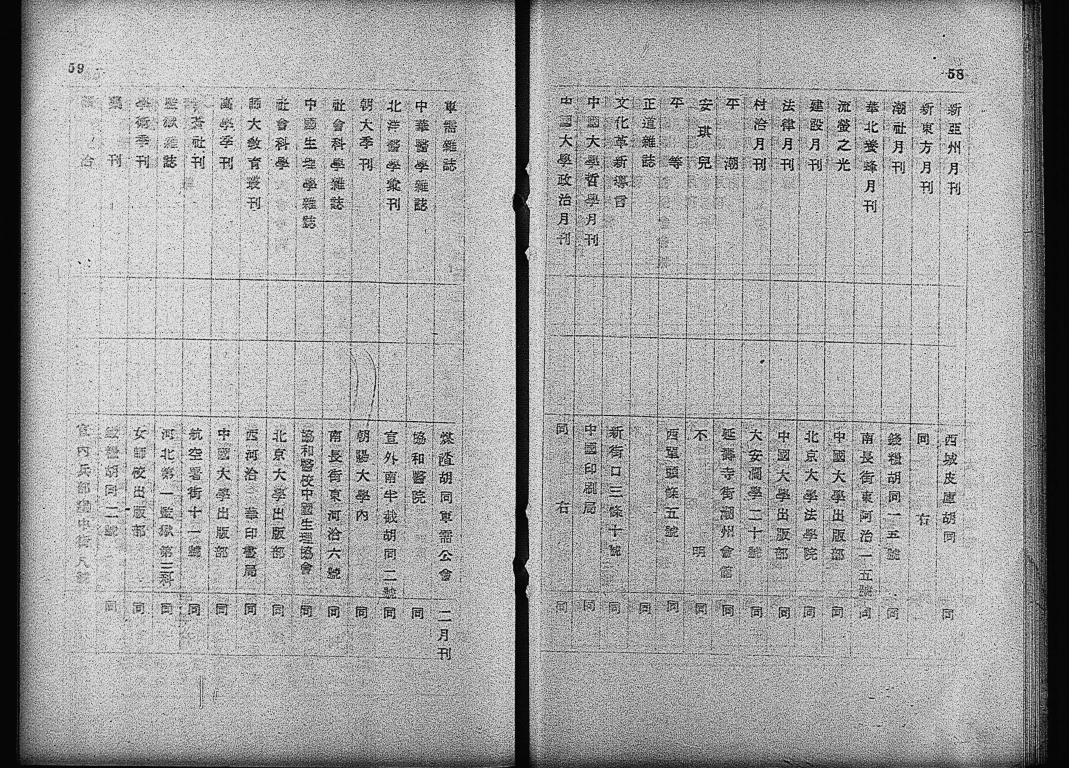 58
新亞州月刊 西城皮庫胡同 同
新東方月刊 同右
潮社月刊 錢糧胡同一五號 同
華北養蜂月刊 南長街東河沿一五號 同
流螢之光 中國大學出版部 同
建設月刊 北京大學法學院 同
法律月刊 中國大學出版部 同
村治月刊 大安瀾學二十號 同
平潮 延壽寺街潮州會館 同
安琪兒 不明 同
平等 西單頭條五號 同
正道雜誌 同
文化革新導言 新街口三條十號 同
中國大學哲學月刊 中國印刷局 同
中國大學政治月刊 同右 同
59
軍需雜誌 煤渣胡同軍需公會 二月刊
中華醫學雜誌 協和醫院 同
北洋醫學彙刊 宣外南半截胡同二號 同
朝大季刊 朝陽大學內 同
社會科學雜誌 南長街東河沿六號 同
中國生理學雜誌 協和醫校中國生理協會 同
社會科學 北京大學出版部 同
師大教育叢刊 西河沿華印書局 同
高學季刊 中國大學出版部 同
社刊 航空署街十一號 同
監獄雜誌 河北第一監獄第三科 同
學術季刊 女師校出版部 同
刊 錢糧胡同二號 同
治 宣內兵部中街八號